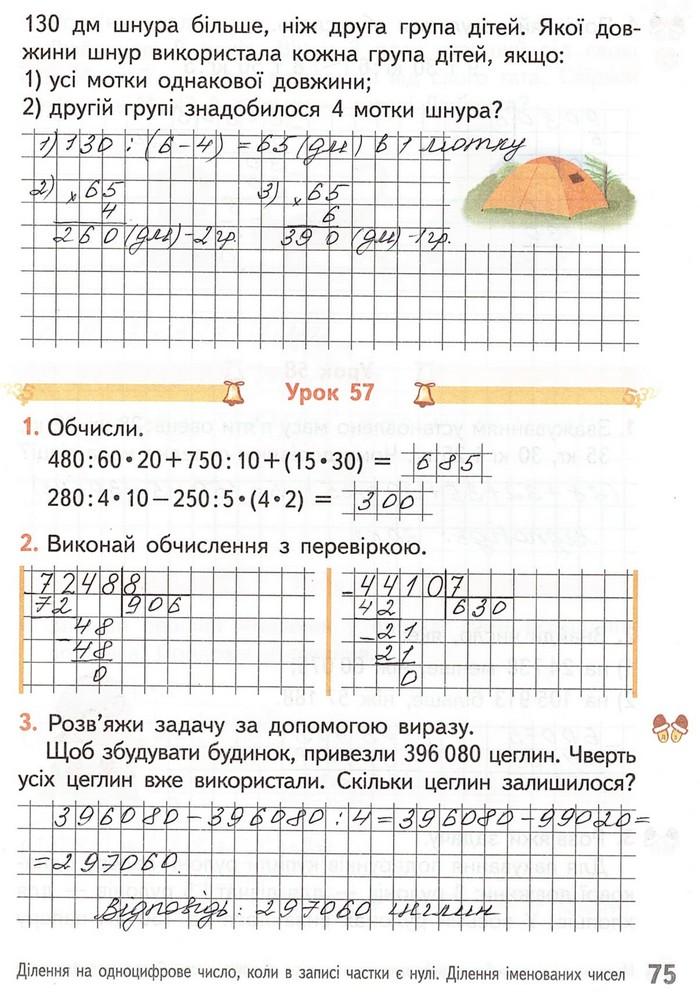 130 дм шнура більше, ніж друга група дітей. Якої дов-
жини шнур використала кожна група дітей, якщо:
1) усі мотки однакової довжини;
2) другій групі знадобилося 4 мотки шнура?
1) 130 : (6 – 4) = 65 (дм) в 1 мотку
2) × 65 3) × 65
4 6
260 (дм) – 2 гр. 390 (дм) – 1 гр.
Урок 57
1. Обчисли.
480 : 60 • 20 + 750 : 10 + (15 • 30) = 685
280 : 4 • 10 – 250 : 5 • (4 • 2) = 300
2. Виконай обчислення з перевіркою.
– 7248 8 – 4410 7
72 906 42 630
– 48 – 21
48 21
0 0
3. Розв'яжи задачу за допомогою виразу.
Щоб збудувати будинок, привезли 396 080 цеглин. Чверть
усіх цеглин вже використали. Скільки цеглин залишилося?
396080 – 396080 : 4 = 396080 – 99020 =
= 297060.
Відповідь: 297060 цеглин
Ділення на одноцифрове число, коли в записі частки є нулі. Ділення іменованих чисел 75